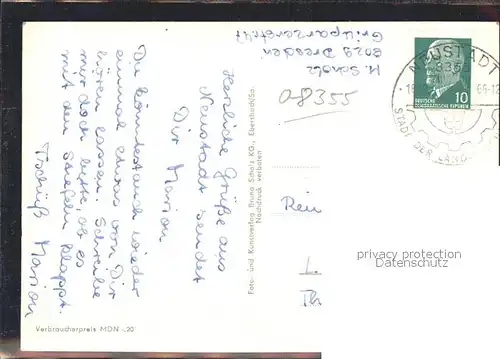 M. Scholz
8029 Dresden
Grillparzerstr. 47
08355
NEUSTADT
8355
18
69-12
STADT DER LAND
DEUTSCHE
DEMOKRATISCHE REPUBLIK
10
Herzliche Grüße aus
Neustadt sendet
Dir Marion
Du könntest auch wieder
einmal etwas von Dir
hören lassen. Schreibe
mir doch bitte ob es
mit den Stiefeln klappt.
Tschüß Marion
Foto- und Kunstverlag Bruno Scholz KG., Ebersbach/Sa.
Nachdruck verboten
Rein
L.
Th
privacy protection
Datenschutz
Verbraucherpreis MDN -,20